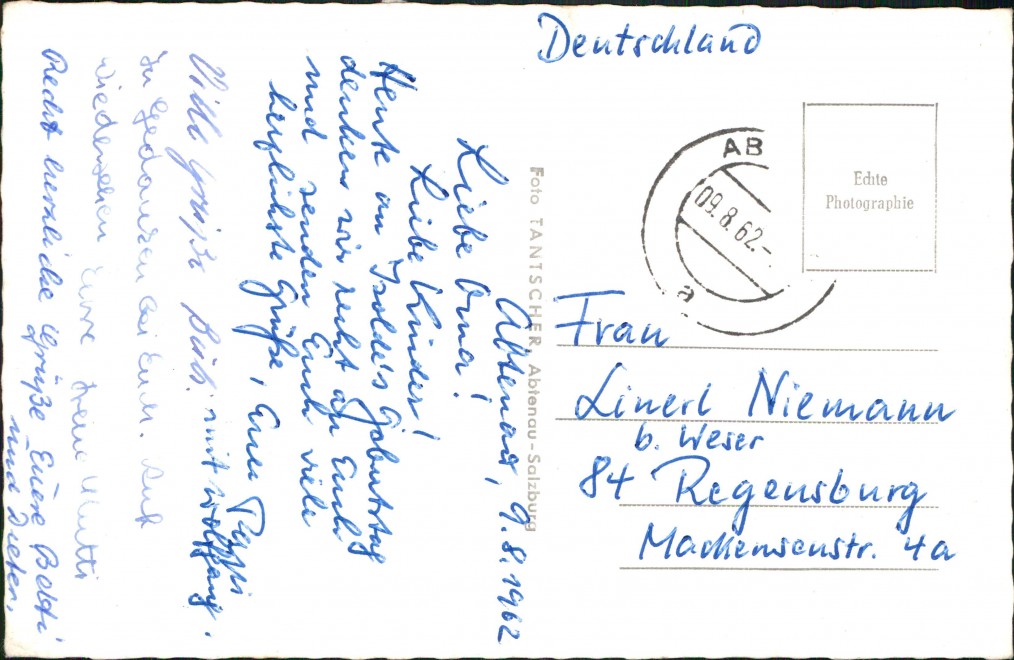 Deutschland
AB
09.8.62.-
a
Echte
Photographie
Foto TANTSCHER, Abtenau-Salzburg
Frau
Linerl Niemann
b. Weser
84 Regensburg
Mackensenstr. 4a
Abtenau, 9.8.1962
Liebe Oma!
Liebe Kinder!
Heute an Isolde's Geburtstag
denken wir recht an Euch
und senden Euch viele
herzlichste Grüße, Euer Pappi
mit Wolfgang.
Viele Grüße
In Gedanken bei Euch. Auf
Wiedersehen Eure Mutti
Recht herzliche Grüße Eure Boldi
und Dieter.